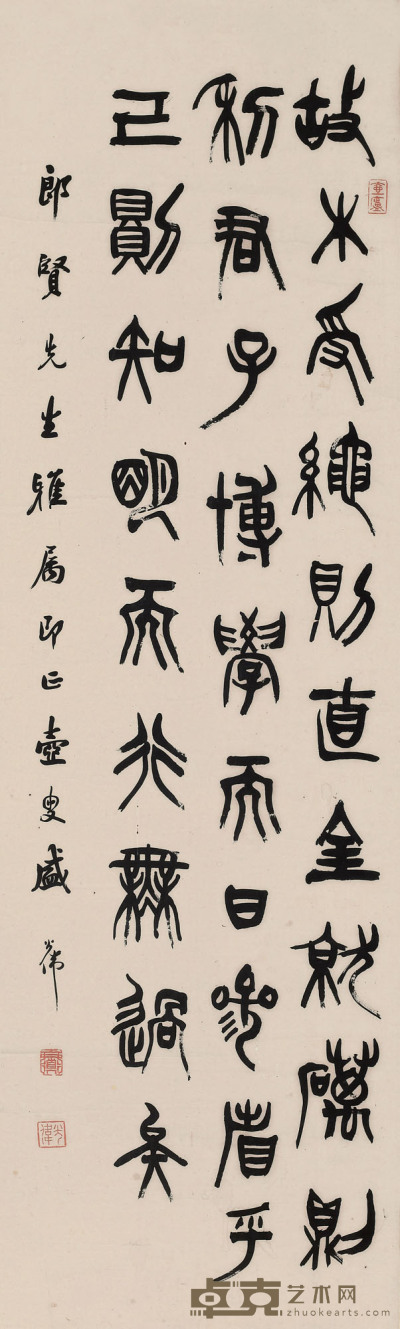 故木受繩則直金就礪則
利君子博學而日參省乎
己則知明而行無過矣
郎賢先生雅属即正壺叟盛光偉
光偉
卓克艺术网
zhuokearts.com